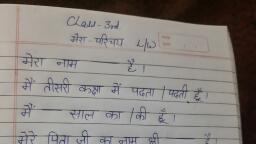 Class-3rd
मेरा परिचय L/W
मेरा नाम ——— है।
मैं तीसरी कक्षा में पढता/पढती हूँ।
मैं —— साल का/की हूँ।
मेरे पिता जी का नाम श्री ——— है।